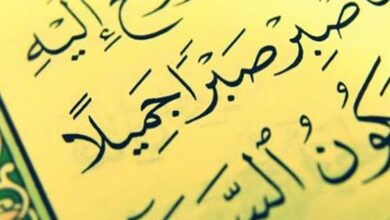 إِلَيْهِ
صْبِرْ صَبْرًا جَمِيلًا
كُونُ ٱلسَّ